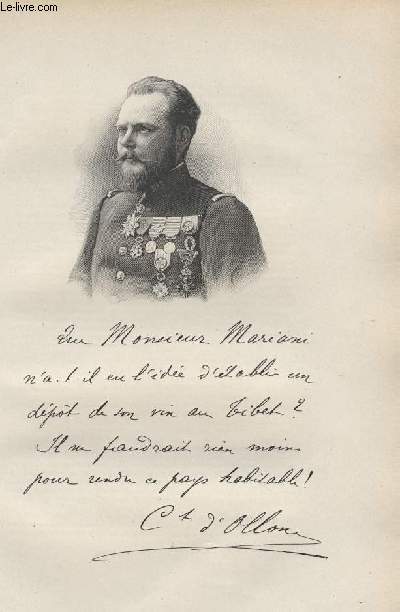 Le-livre.com
Que Monsieur Mariani
n'a-t il eu l'idée d'établir un
dépôt de son vin au Tibet?
Il ne faudrait rien moins
pour rendre ce pays habitable!
Ct d'Ollone